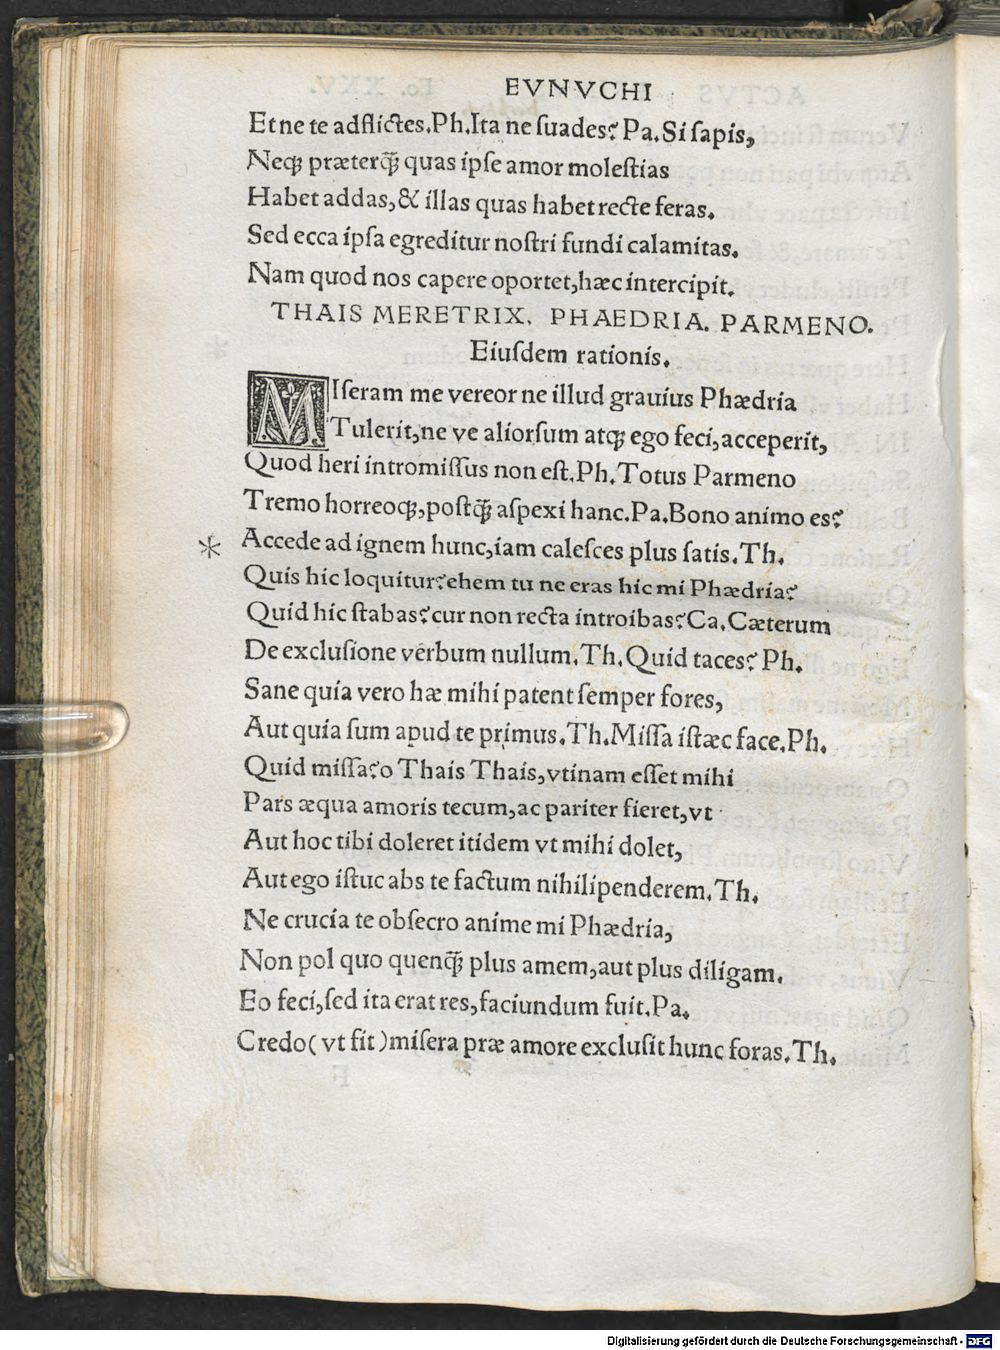 EVNVCHI
Et ne te adflictes.Ph.Ita ne ſuades? Pa.Si ſapis,
Neqꝫ præterꝙ̃ quas ipſe amor moleſtias
Habet addas,& illas quas habet recte feras.
Sed ecca ipſa egreditur noſtri fundi calamitas.
Nam quod nos capere oportet,hæc intercipit.
THAIS MERETRIX. PHAEDRIA. PARMENO.
Eiuſdem rationis.
MIſeram me vereor ne illud grauius Phædria
Tulerit,ne ve aliorſum atqꝫ ego feci,acceperit,
Quod heri intromiſſus non eſt.Ph.Totus Parmeno
Tremo horreoqꝫ,poſtꝙ̃ aſpexi hanc.Pa.Bono animo es?
* Accede ad ignem hunc,iam caleſces plus ſatis.Th.
Quis hic loquitur?ehem tu ne eras hic mi Phædria?
Quid hic ſtabas?cur non recta introibas?Ca.Cæterum
De excluſione verbum nullum.Th.Quid taces? Ph.
Sane quia vero hæ mihi patent ſemper fores,
Aut quia ſum apud te primus.Th.Miſſa iſtæc face.Ph.
Quid miſſa?o Thais Thais,vtinam eſſet mihi
Pars æqua amoris tecum,ac pariter fieret,vt
Aut hoc tibi doleret itidem vt mihi dolet,
Aut ego iſtuc abs te factum nihilipenderem.Th.
Ne crucia te obſecro anime mi Phædria,
Non pol quo quenꝙ̃ plus amem,aut plus diligam.
Eo feci,ſed ita erat res,faciundum fuit.Pa.
Credo(vt fit)miſera præ amore excluſit hunc foras.Th.
Digitalisierung gefördert durch die Deutsche Forschungsgemeinschaft - DFG